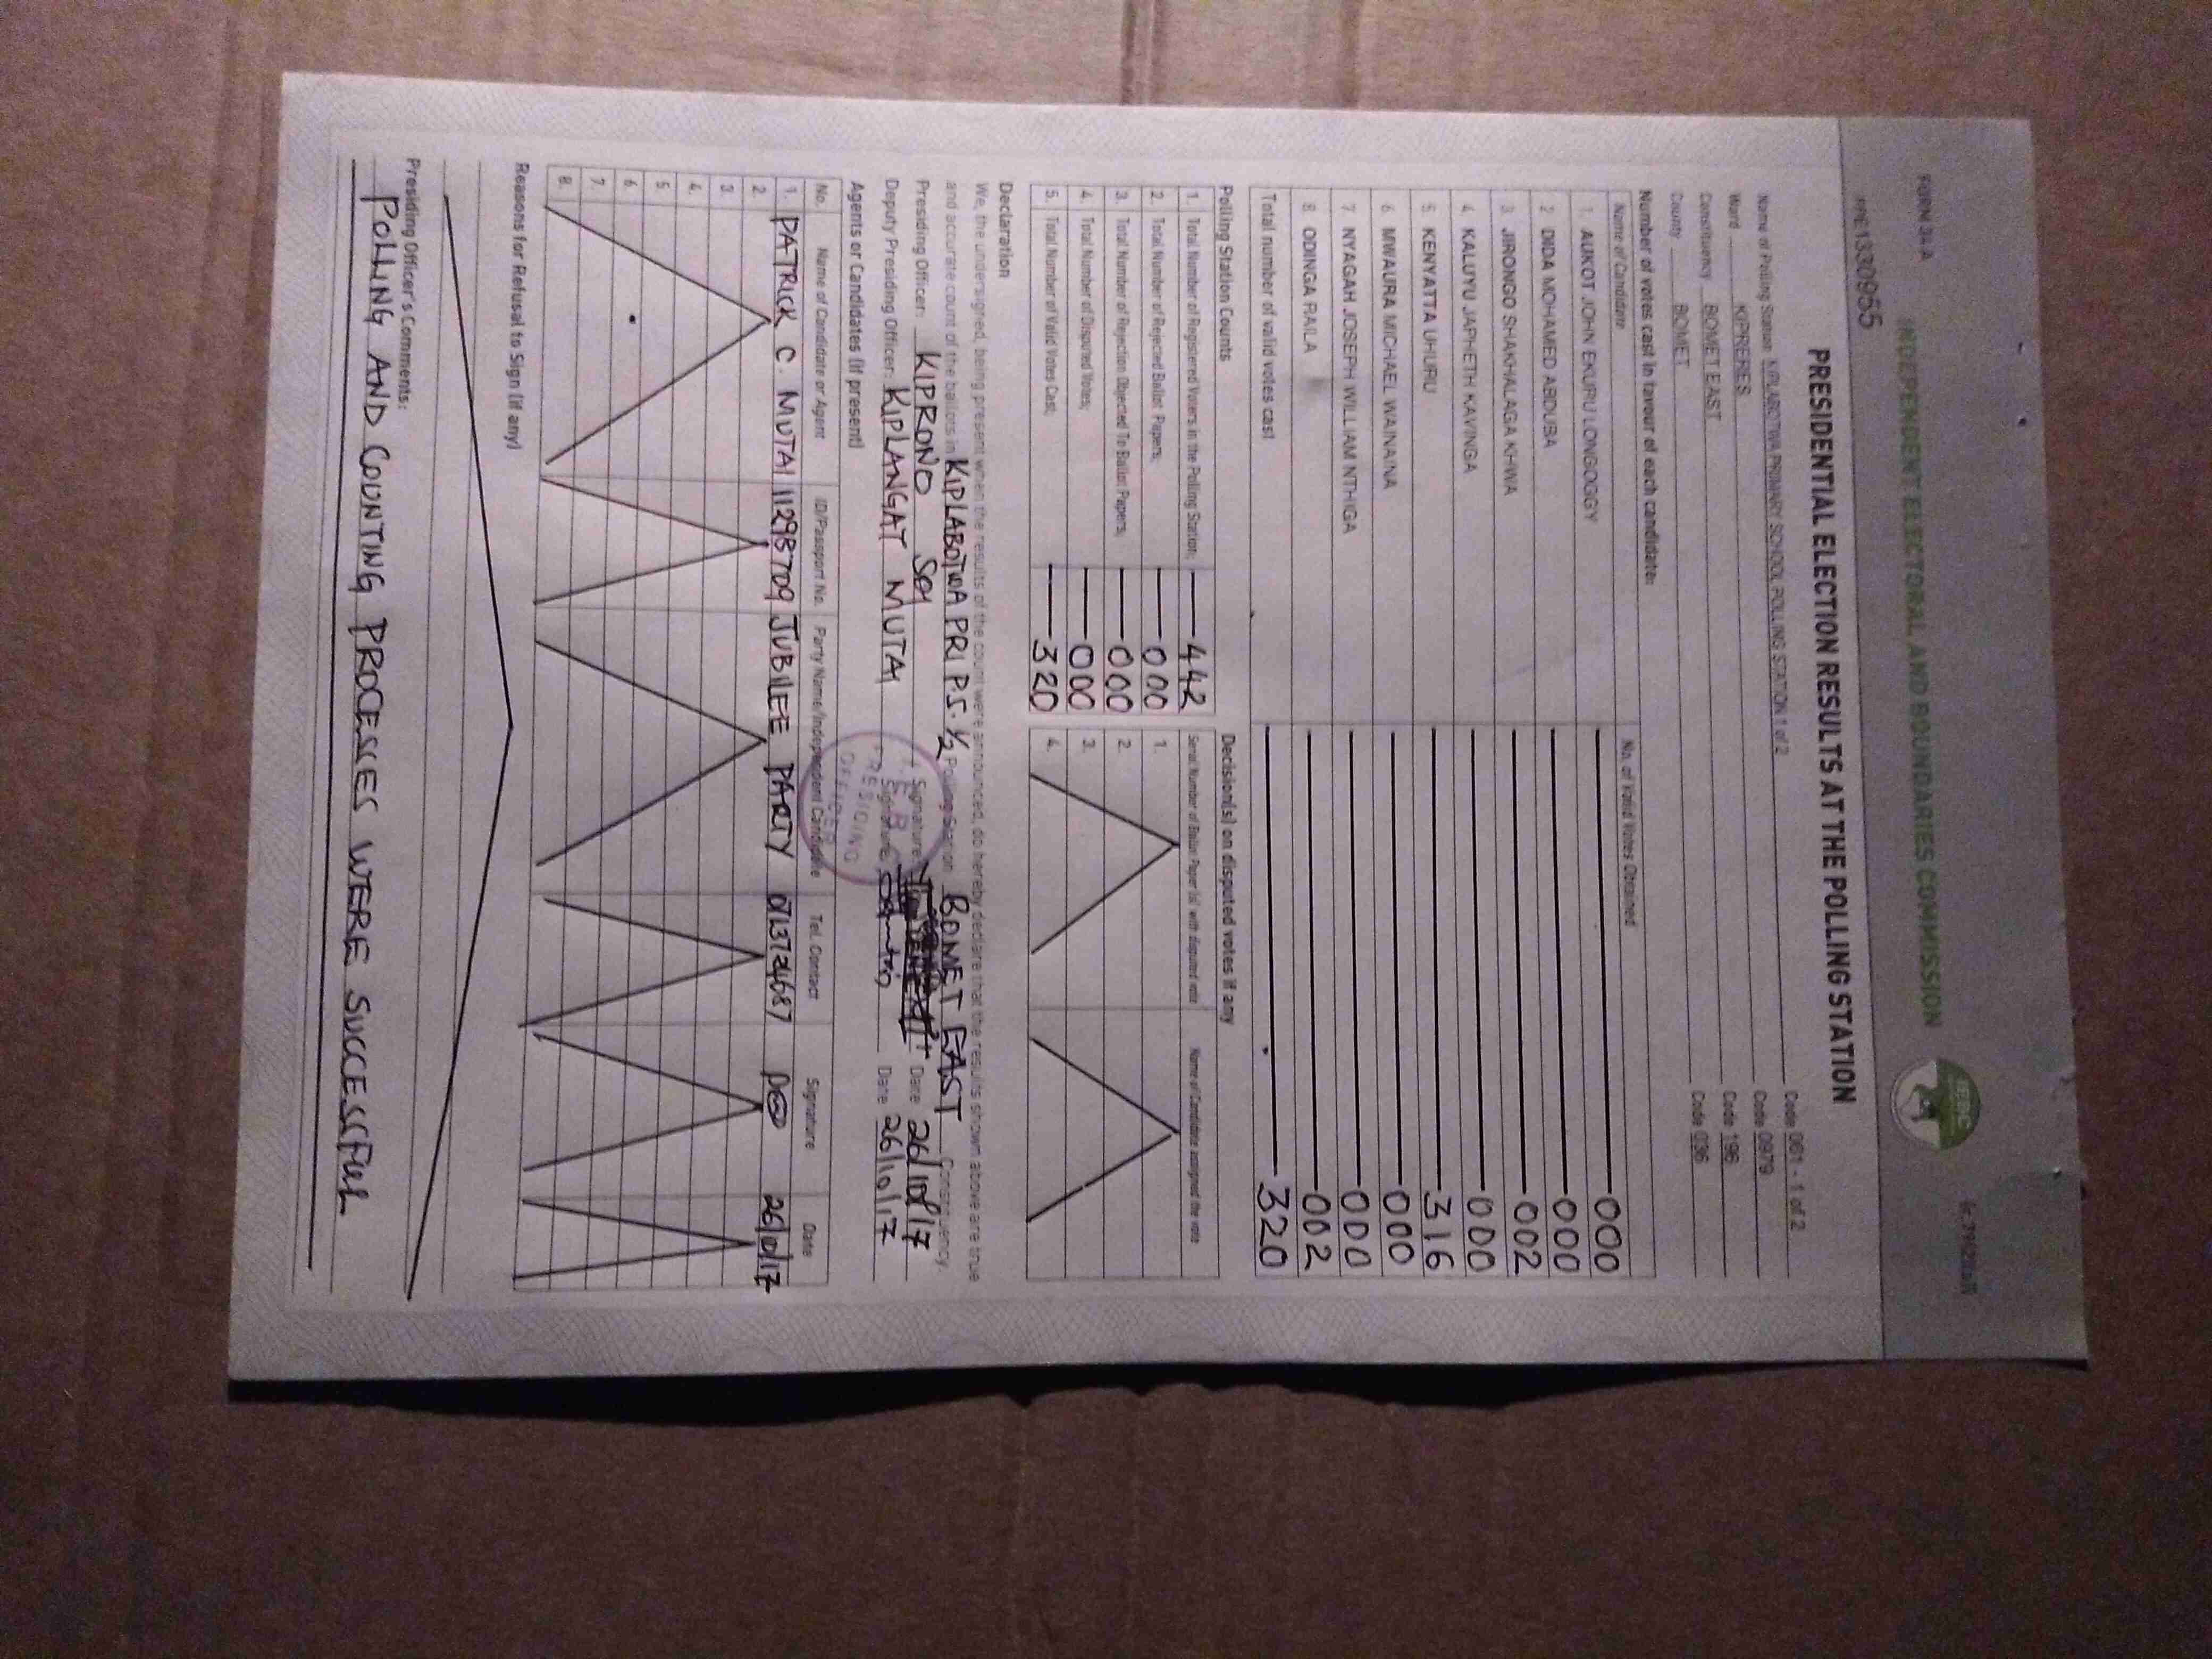 FORM 34A
INDEPENDENT ELECTORAL AND BOUNDARIES COMMISSION
IEBC
1330955
PRESIDENTIAL ELECTION RESULTS AT THE POLLING STATION
Name of Polling Station KIPLABOTWA PRIMARY SCHOOL POLLING STATION 1 of 2 Code 061 - 1 of 2
Ward KIPRERES Code 0979
Constituency BOMET EAST Code 196
County BOMET Code 036
Number of votes cast in favour of each candidate:
Name of Candidate No. of Valid Votes Obtained
1. AUKOT JOHN EKURU LONGOGGY 000
2 DIDA MOHAMED ABDUBA 000
3 JIRONGO SHAKHALAGA KHWA 002
4 KALUYU JAPHETH KAVINGA 000
5 KENYATTA UHURU 316
6 MWAURA MICHAEL WAINAINA 000
7 NYAGAH JOSEPH WILLIAM NTHIGA 000
8 ODINGA RAILA 002
Total number of valid votes cast 320
Polling Station Counts
1. Total Number of Registered Voters in the Polling Station; 442
2. Total Number of Rejected Ballot Papers; 000
3. Total Number of Rejection Objected To Ballot Papers; 000
4. Total Number of Disputed Votes; 000
5. Total Number of Valid Votes Cast; 320
Decision(s) on disputed votes if any
Serial Number of Ballot Paper (s) with disputed vote Name of Candidate assigned the vote
1.
2.
3.
4.
Declaration
We, the undersigned, being present when the results of the count were announced, do hereby declare that the results shown above are true
and accurate count of the ballots in KIPLABOTWA PRI P.S. 1/2 Polling Station BOMET EAST Constituency.
Presiding Officer: KIPRONO Signature: Date 26/10/17
Deputy Presiding Officer: KIPLANGAT MUTAI Signature: Date 26/10/17
I.E.B.C
PRESIDING
OFFICER
Agents or Candidates (if present)
No. Name of Candidate or Agent ID/Passport No. Party Name/Independent Candidate Tel. Contact Signature Date
1. PATRICK C. MUTAI 11298709 JUBILEE PARTY 26/10/17
2.
3.
4.
5.
6.
7.
8.
Reasons for Refusal to Sign (if any)
Presiding Officer's Comments:
POLLING AND COUNTING PROCESCES WERE SUCCESSFUL